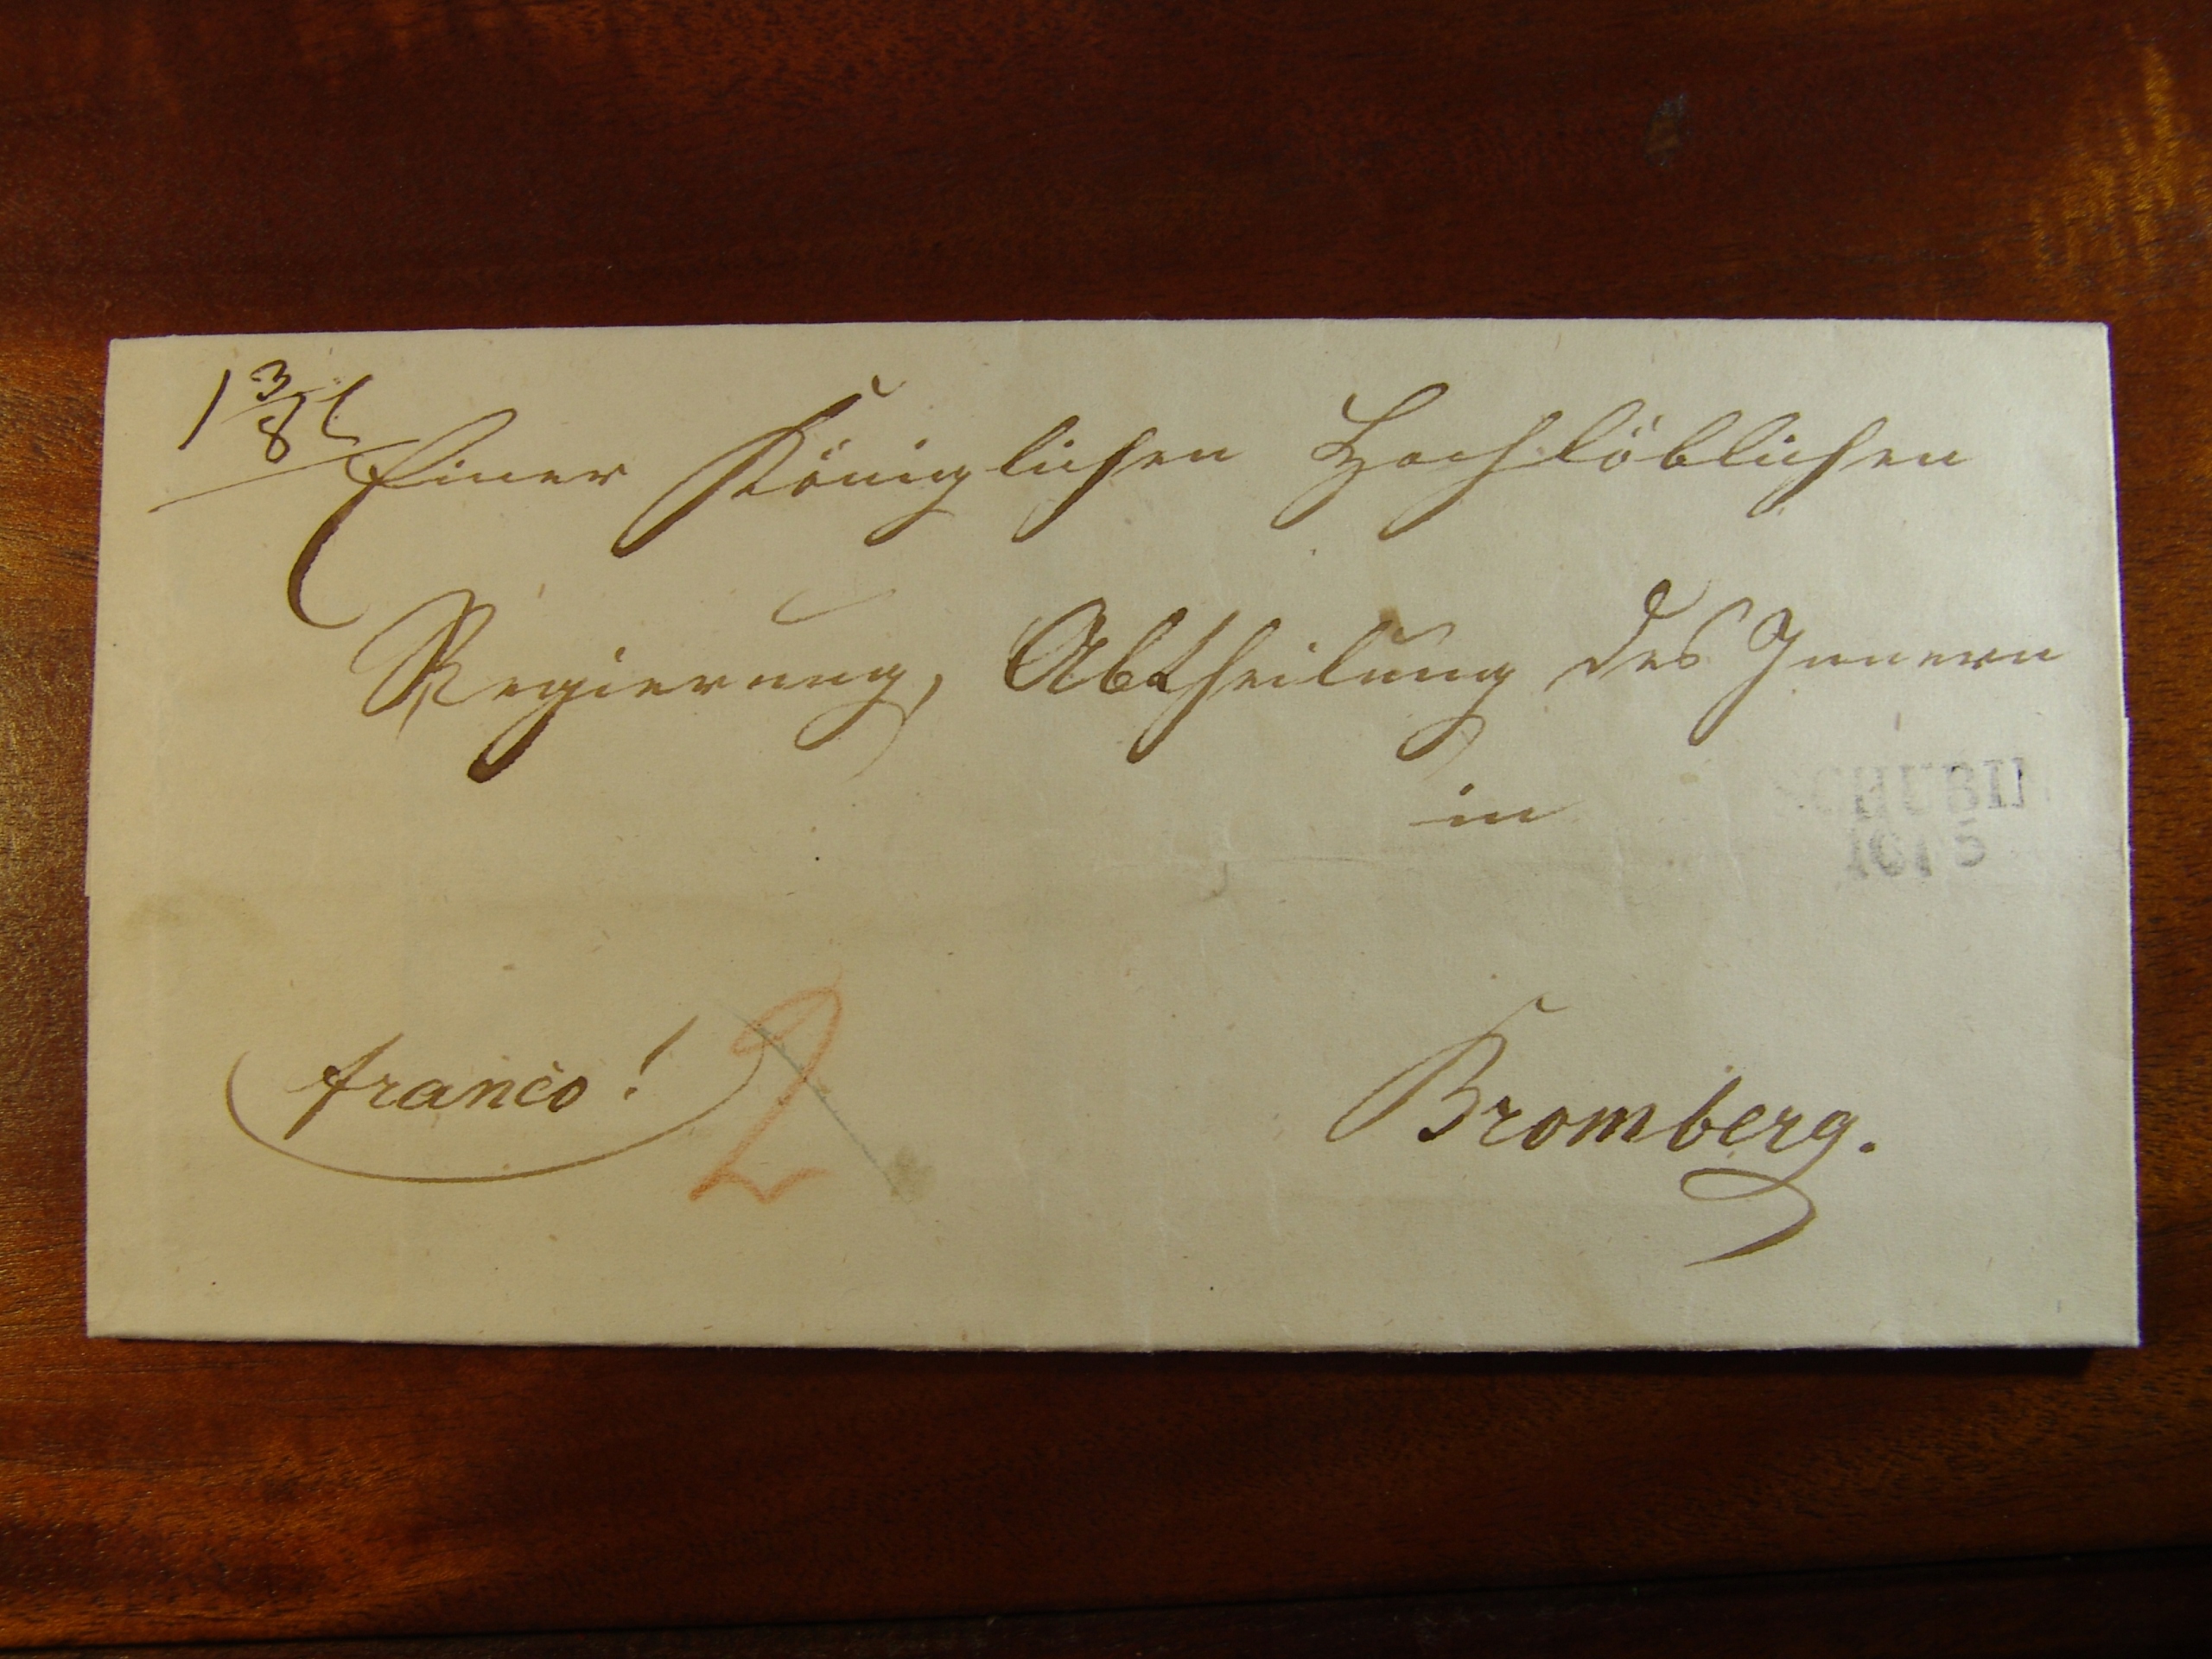 1 3/8 l
Einer Königlichen Hochlöblichen
Regierung, Abtheilung des Innern
in
SCHUBIN
franco!
2
Bromberg.